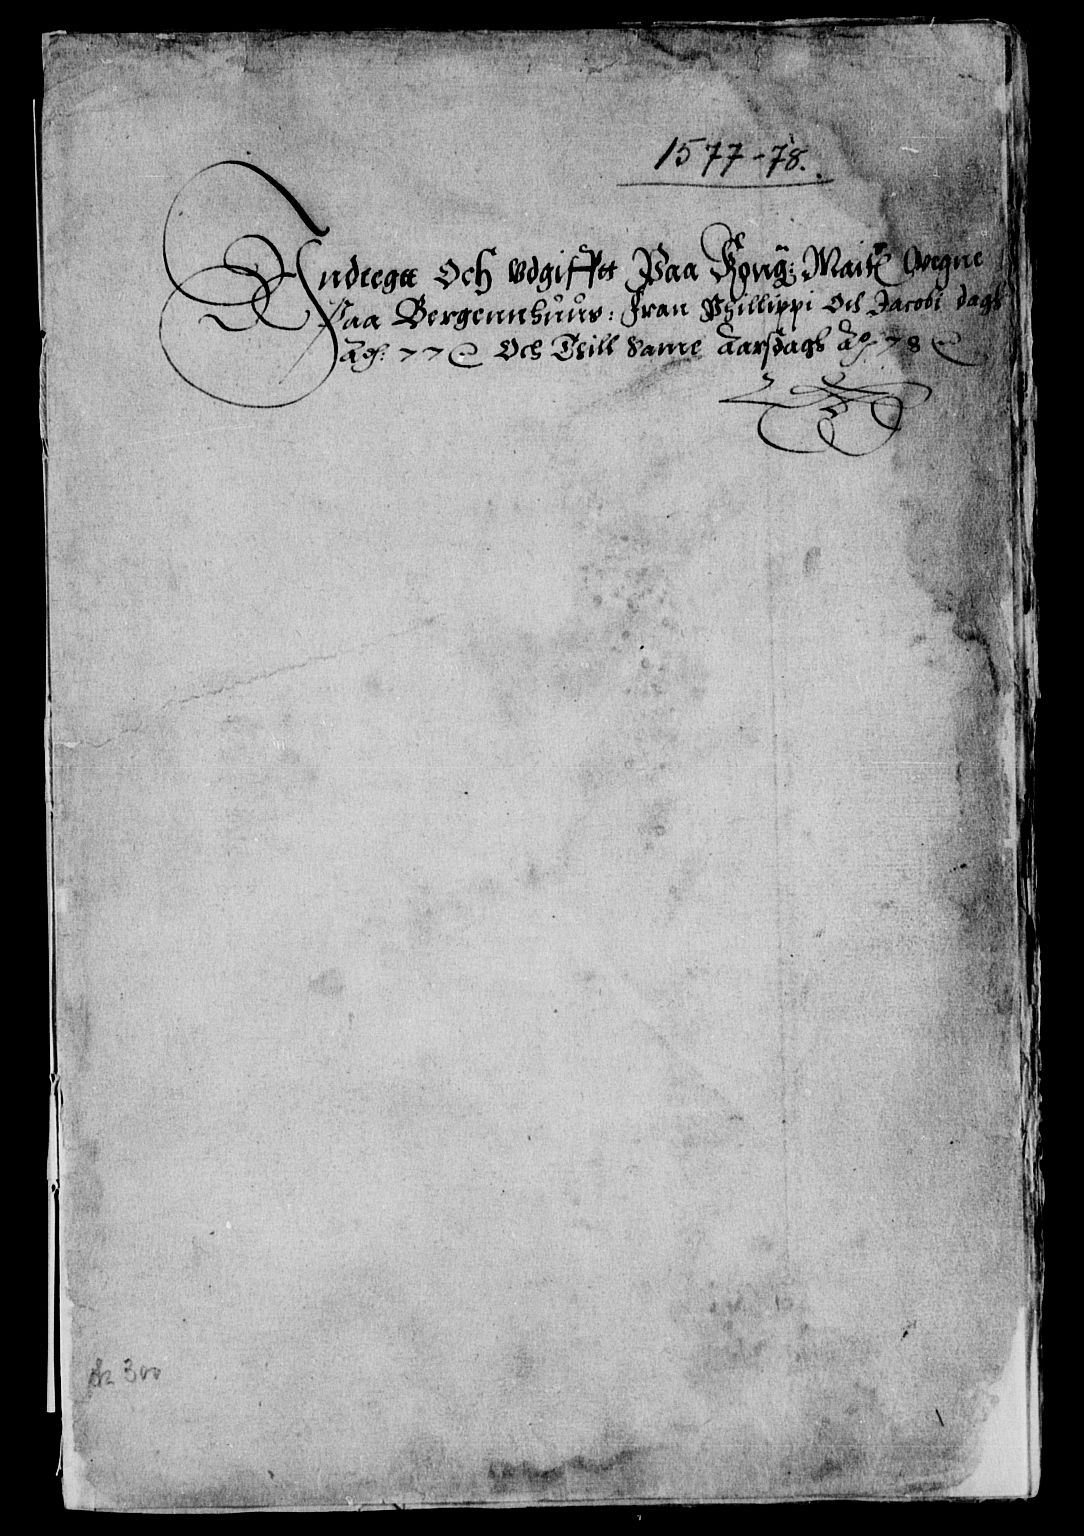 1577-78.
Indtegtt Och vdgifftt Paa Kong: Maitt: Wegne
Paa Bergennhuus: Fran Phillippi Och Jacobi dags
Ao: 77 Och Thill Same Aarsdags Ao: 78
300